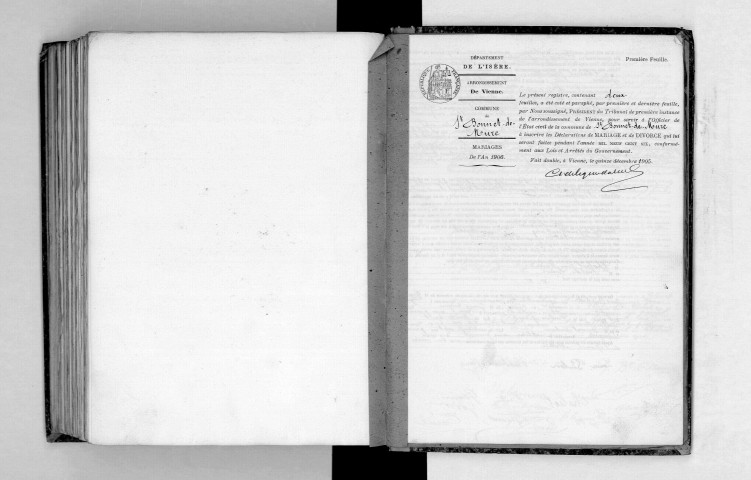 DÉPARTEMENT
DE L'ISÈRE.
ARRONDISSEMENT
De Vienne.
COMMUNE
St Bonnet-de-
Mure
MARIAGES
De l'An 1906.
Première Feuille.
Le présent registre, contenant deux
feuilles, a été coté et paraphé, par première et dernière feuille,
par Nous soussigné, PRÉSIDENT du Tribunal de première instance
de l'arrondissement de Vienne, pour servir à l'Officier de
l'Etat civil de la commune de St Bonnet-de-Mure
à inscrire les Déclarations de MARIAGE et de DIVORCE qui lui
seront faites pendant l'année MIL NEUF CENT SIX, conformé-
ment aux Lois et Arrêtés du Gouvernement.
Fait double, à Vienne, le quinze décembre 1905.